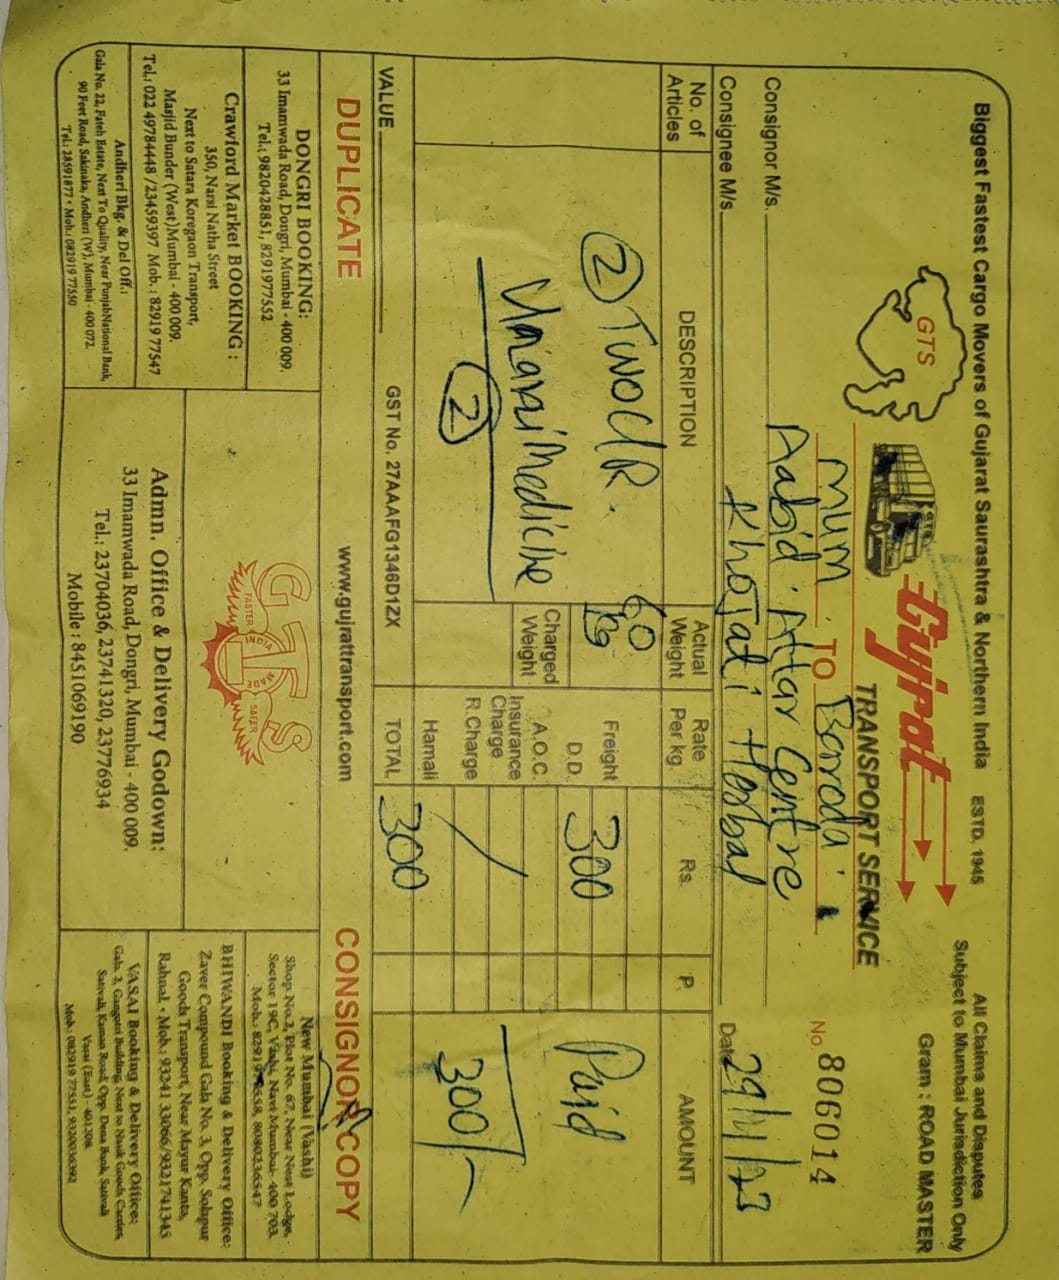 Biggest Fastest Cargo Movers of Gujarat Saurashtra & Northern India ESTD. 1945
All Claims and Disputes
Subject to Mumbai Jurisdiction Only
Gram : ROAD MASTER
GTS
Gujrat
TRANSPORT SERVICE
Mum TO Baroda
No. 806014
Consignor M/s. Aabid Attar Centre
Consignee M/s. Khojati Herbal
Date 29/1/23
No. of Articles
DESCRIPTION
Actual Weight
Rate Per kg.
Rs.
P.
AMOUNT
② Two CIR.
Unani Medicine
②
60 kg
Charged Weight
Freight
D.D. 300
A.O.C.
Insurance Charge
R.Charge
Hamali
TOTAL 300
Paid
300/-
VALUE
GST No. 27AAAFG1346D1ZX
DUPLICATE
www.gujrattransport.com
CONSIGNOR COPY
DONGRI BOOKING:
33 Imamwada Road, Dongri, Mumbai - 400 009.
Tel.: 9820428851, 8291977552
Crawford Market BOOKING :
350, Narsi Natha Street
Next to Satara Koregaon Transport,
Masjid Bunder (West)Mumbai - 400 009.
Tel.: 022 49784448 /23459397 Mob. : 82919 77547
Andheri Bkg. & Del Off.:
Gala No. 22, Fateh Estate, Next To Quality, Near PunjabNational Bank,
90 Feet Road, Sakinaka, Andheri (W), Mumbai - 400 072.
Tel.: 28591877 • Mob.: 08291977550
GTS
FASTER
INDIA
MADE
SAFER
Admn. Office & Delivery Godown:
33 Imamwada Road, Dongri, Mumbai - 400 009.
Tel.: 23704036, 23741320, 23776934
Mobile : 8451069190
New Mumbai (Vashi)
Shop No.2, Plot No. 67, Near Nest Lodge,
Sector 19C, Vashi, Navi Mumbai- 400 703.
BHIWANDI Booking & Delivery Office:
Zaver Compound Gala No. 3, Opp. Solapur
Goods Transport, Near Mayur Kanta,
Rahnal. • Mob.: 93241 33066/9321741345
VASAI Booking & Delivery Office:
Gala. 2, Gangotri Building, Next to Nasik Goods Carrier,
Sativali, Kaman Road, Opp. Dena Bank, Sativali
Vasai (East) - 401208.